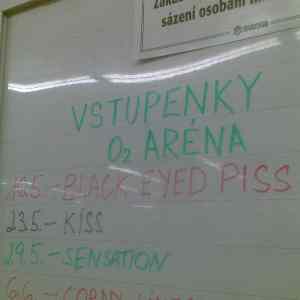 sázení osobám
VSTUPENKY
O2 ARÉNA
20.5.-BLACK EYED PISS
23.5.-KISS
29.5.-SENSATION
6.6.-GORAN